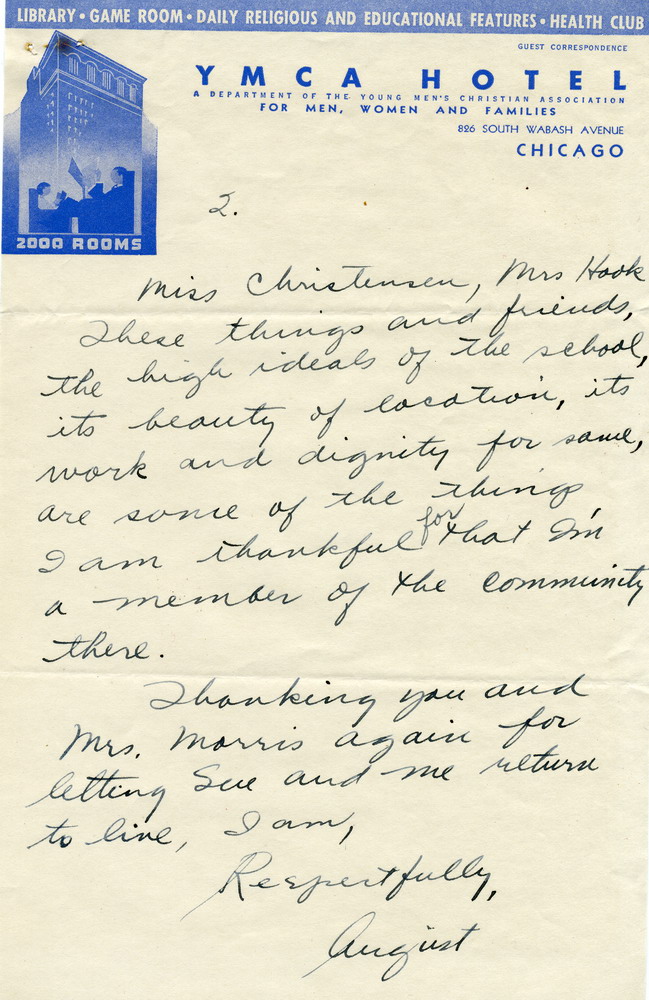 LIBRARY • GAME ROOM • DAILY RELIGIOUS AND EDUCATIONAL FEATURES • HEALTH CLUB
GUEST CORRESPONDENCE
YMCA HOTEL
A DEPARTMENT OF THE YOUNG MEN'S CHRISTIAN ASSOCIATION
FOR MEN, WOMEN AND FAMILIES
826 SOUTH WABASH AVENUE
CHICAGO
2000 ROOMS
2.
Miss Christensen, Mrs Hook
These things and friends,
the high ideals of the school,
its beauty of location, its
work and dignity for same,
are some of the things
I am thankful for that I'm
a member of the community
there.
Thanking you and
Mrs. Morris again for
letting Sue and me return
to live, I am,
Respectfully,
August